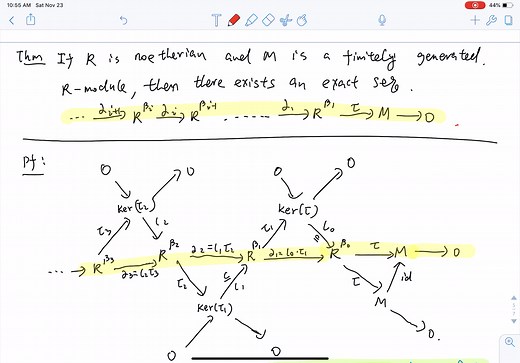 10:55 AM Sat Nov 23
44%
Thm If R is noetherian and M is a finitely generated
R-module, then there exists an exact seq.
... α_{i+1} → R^{β_i} α_i → R^{β_{i-1}} ...... α_1 → R^{β_1} τ → M → 0
Pf:
0 0 0 0
ker(τ_2) ker(τ)
τ_3 ι_2 τ_1 ι_0
... → R^{β_3} α_3=ι_2τ_3 R^{β_2} α_2=ι_1τ_2 R^{β_1} α_1=ι_0·τ_1 R^{β_0} τ → M → 0
τ_2 ι_1 τ id
ker(τ_1) M
0 0 0.